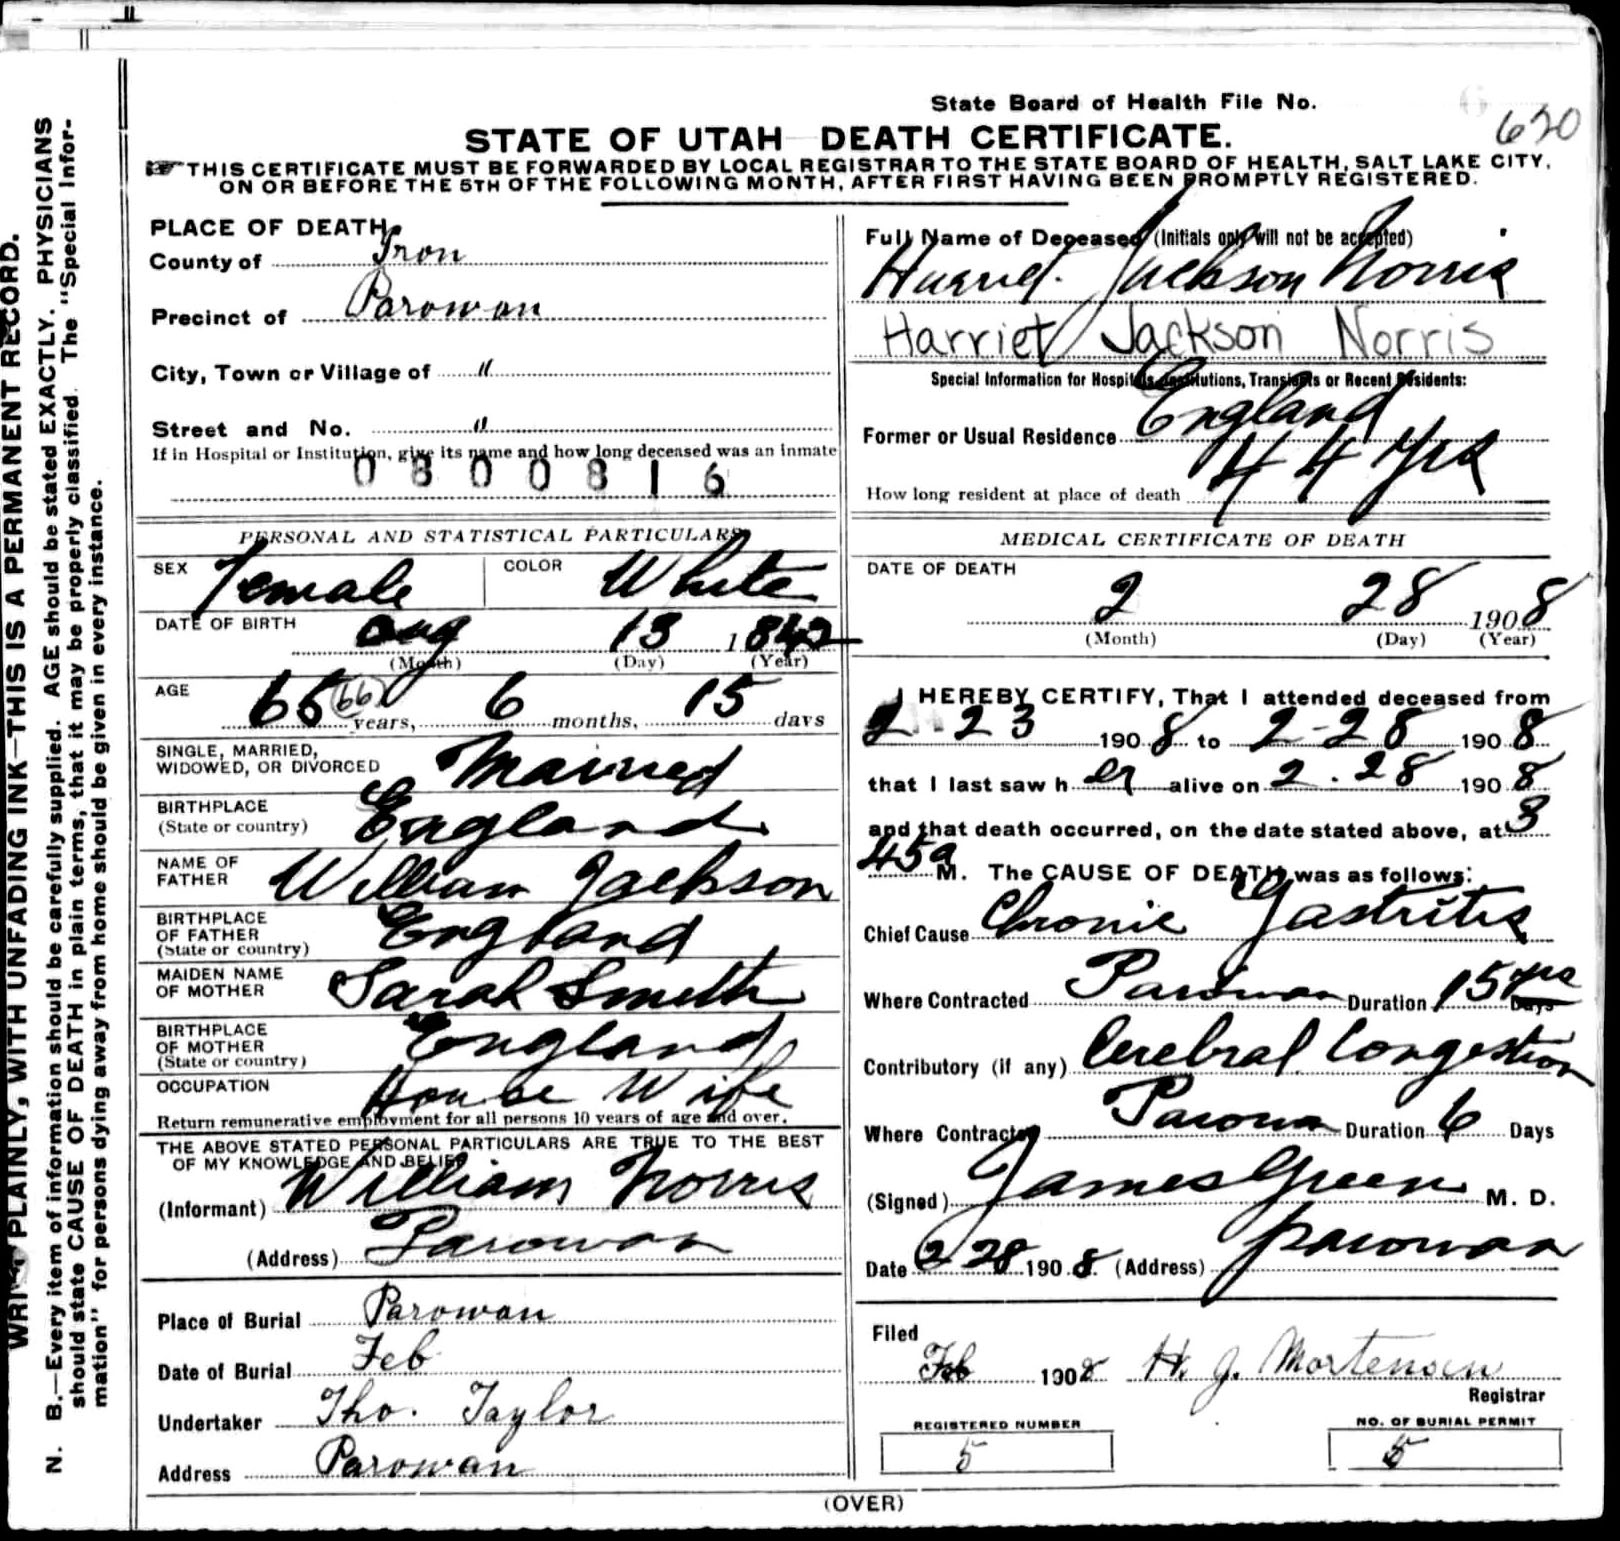 State Board of Health File No.
620
STATE OF UTAH DEATH CERTIFICATE.
THIS CERTIFICATE MUST BE FORWARDED BY LOCAL REGISTRAR TO THE STATE BOARD OF HEALTH, SALT LAKE CITY,
ON OR BEFORE THE 5TH OF THE FOLLOWING MONTH, AFTER FIRST HAVING BEEN PROMPTLY REGISTERED.
WRITE PLAINLY, WITH UNFADING INK—THIS IS A PERMANENT RECORD.
N. B.—Every item of information should be carefully supplied. AGE should be stated EXACTLY. PHYSICIANS
should state CAUSE OF DEATH in plain terms, that it may be properly classified. The "Special Infor-
mation" for persons dying away from home should be given in every instance.
PLACE OF DEATH
County of Iron
Precinct of Parowan
City, Town or Village of "
Street and No. "
If in Hospital or Institution, give its name and how long deceased was an inmate
0300816
PERSONAL AND STATISTICAL PARTICULARS
SEX Female COLOR White
DATE OF BIRTH Aug 13 1842
(Month) (Day) (Year)
AGE 65 (66) years, 6 months, 15 days
SINGLE, MARRIED,
WIDOWED, OR DIVORCED Married
BIRTHPLACE
(State or country) England
NAME OF
FATHER William Jackson
BIRTHPLACE
OF FATHER
(State or country) England
MAIDEN NAME
OF MOTHER Sarah Smith
BIRTHPLACE
OF MOTHER
(State or country) England
OCCUPATION House Wife
Return remunerative employment for all persons 10 years of age and over.
THE ABOVE STATED PERSONAL PARTICULARS ARE TRUE TO THE BEST
OF MY KNOWLEDGE AND BELIEF
(Informant) William Norris
(Address) Parowan
Place of Burial Parowan
Date of Burial Feb
Undertaker Tho. Taylor
Address Parowan
Full Name of Deceased (Initials only will not be accepted)
Harriet Jackson Norris
Harriet Jackson Norris
Special Information for Hospitals, Institutions, Transients or Recent Residents:
Former or Usual Residence England
How long resident at place of death 44 yrs
MEDICAL CERTIFICATE OF DEATH
DATE OF DEATH
2 28 1908
(Month) (Day) (Year)
I HEREBY CERTIFY, That I attended deceased from
2 23 1908 to 2-28 1908
that I last saw her alive on 2.28 1908
and that death occurred, on the date stated above, at 3
45 a M. The CAUSE OF DEATH was as follows:
Chief Cause Chronic Gastritis
Where Contracted Parowan Duration 15 yrs Days
Contributory (if any) Cerebral Congestion
Where Contracted Parowan Duration 6 Days
(Signed) James Green M. D.
Date 2 28 1908 (Address) Parowan
Filed
Feb 1908 H. J. Mortensen
Registrar
REGISTERED NUMBER
5
NO. OF BURIAL PERMIT
5
(OVER)